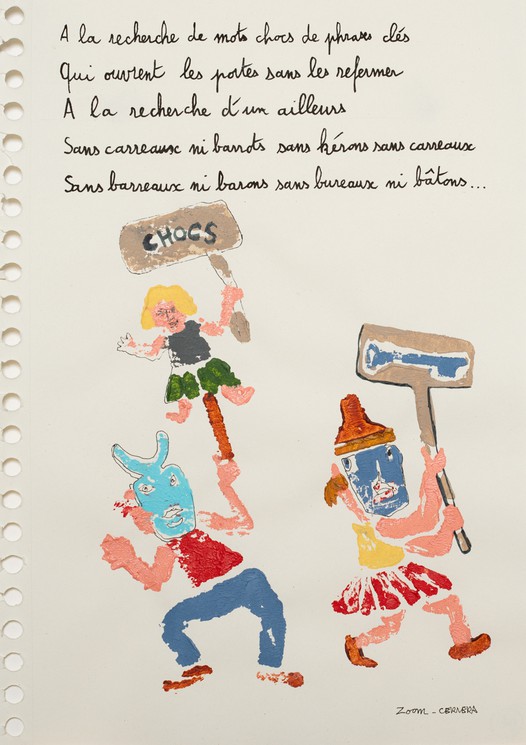 A la recherche de mots chocs de phrases clés
Qui ouvrent les portes sans les refermer
A la recherche d'un ailleurs
Sans carreaux ni barrots sans hérons sans carreaux
Sans barreaux ni barons sans bureaux ni bâtons...
CHOCS
Zoom - CERVERA